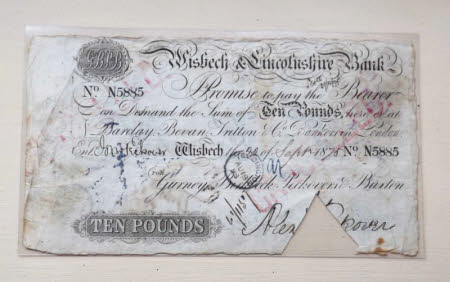 Wisbech & Lincolnshire Bank
No N5885 Promise to pay the Bearer
on Demand the Sum of Ten Pounds, here or at
Barclay, Bevan, Tritton & Co Bankers in London
Entd Wisbech the of Sept 1878 No N5885
For Gurney, Birkbeck, Peckover & Buxton
TEN POUNDS
Alex Peckover